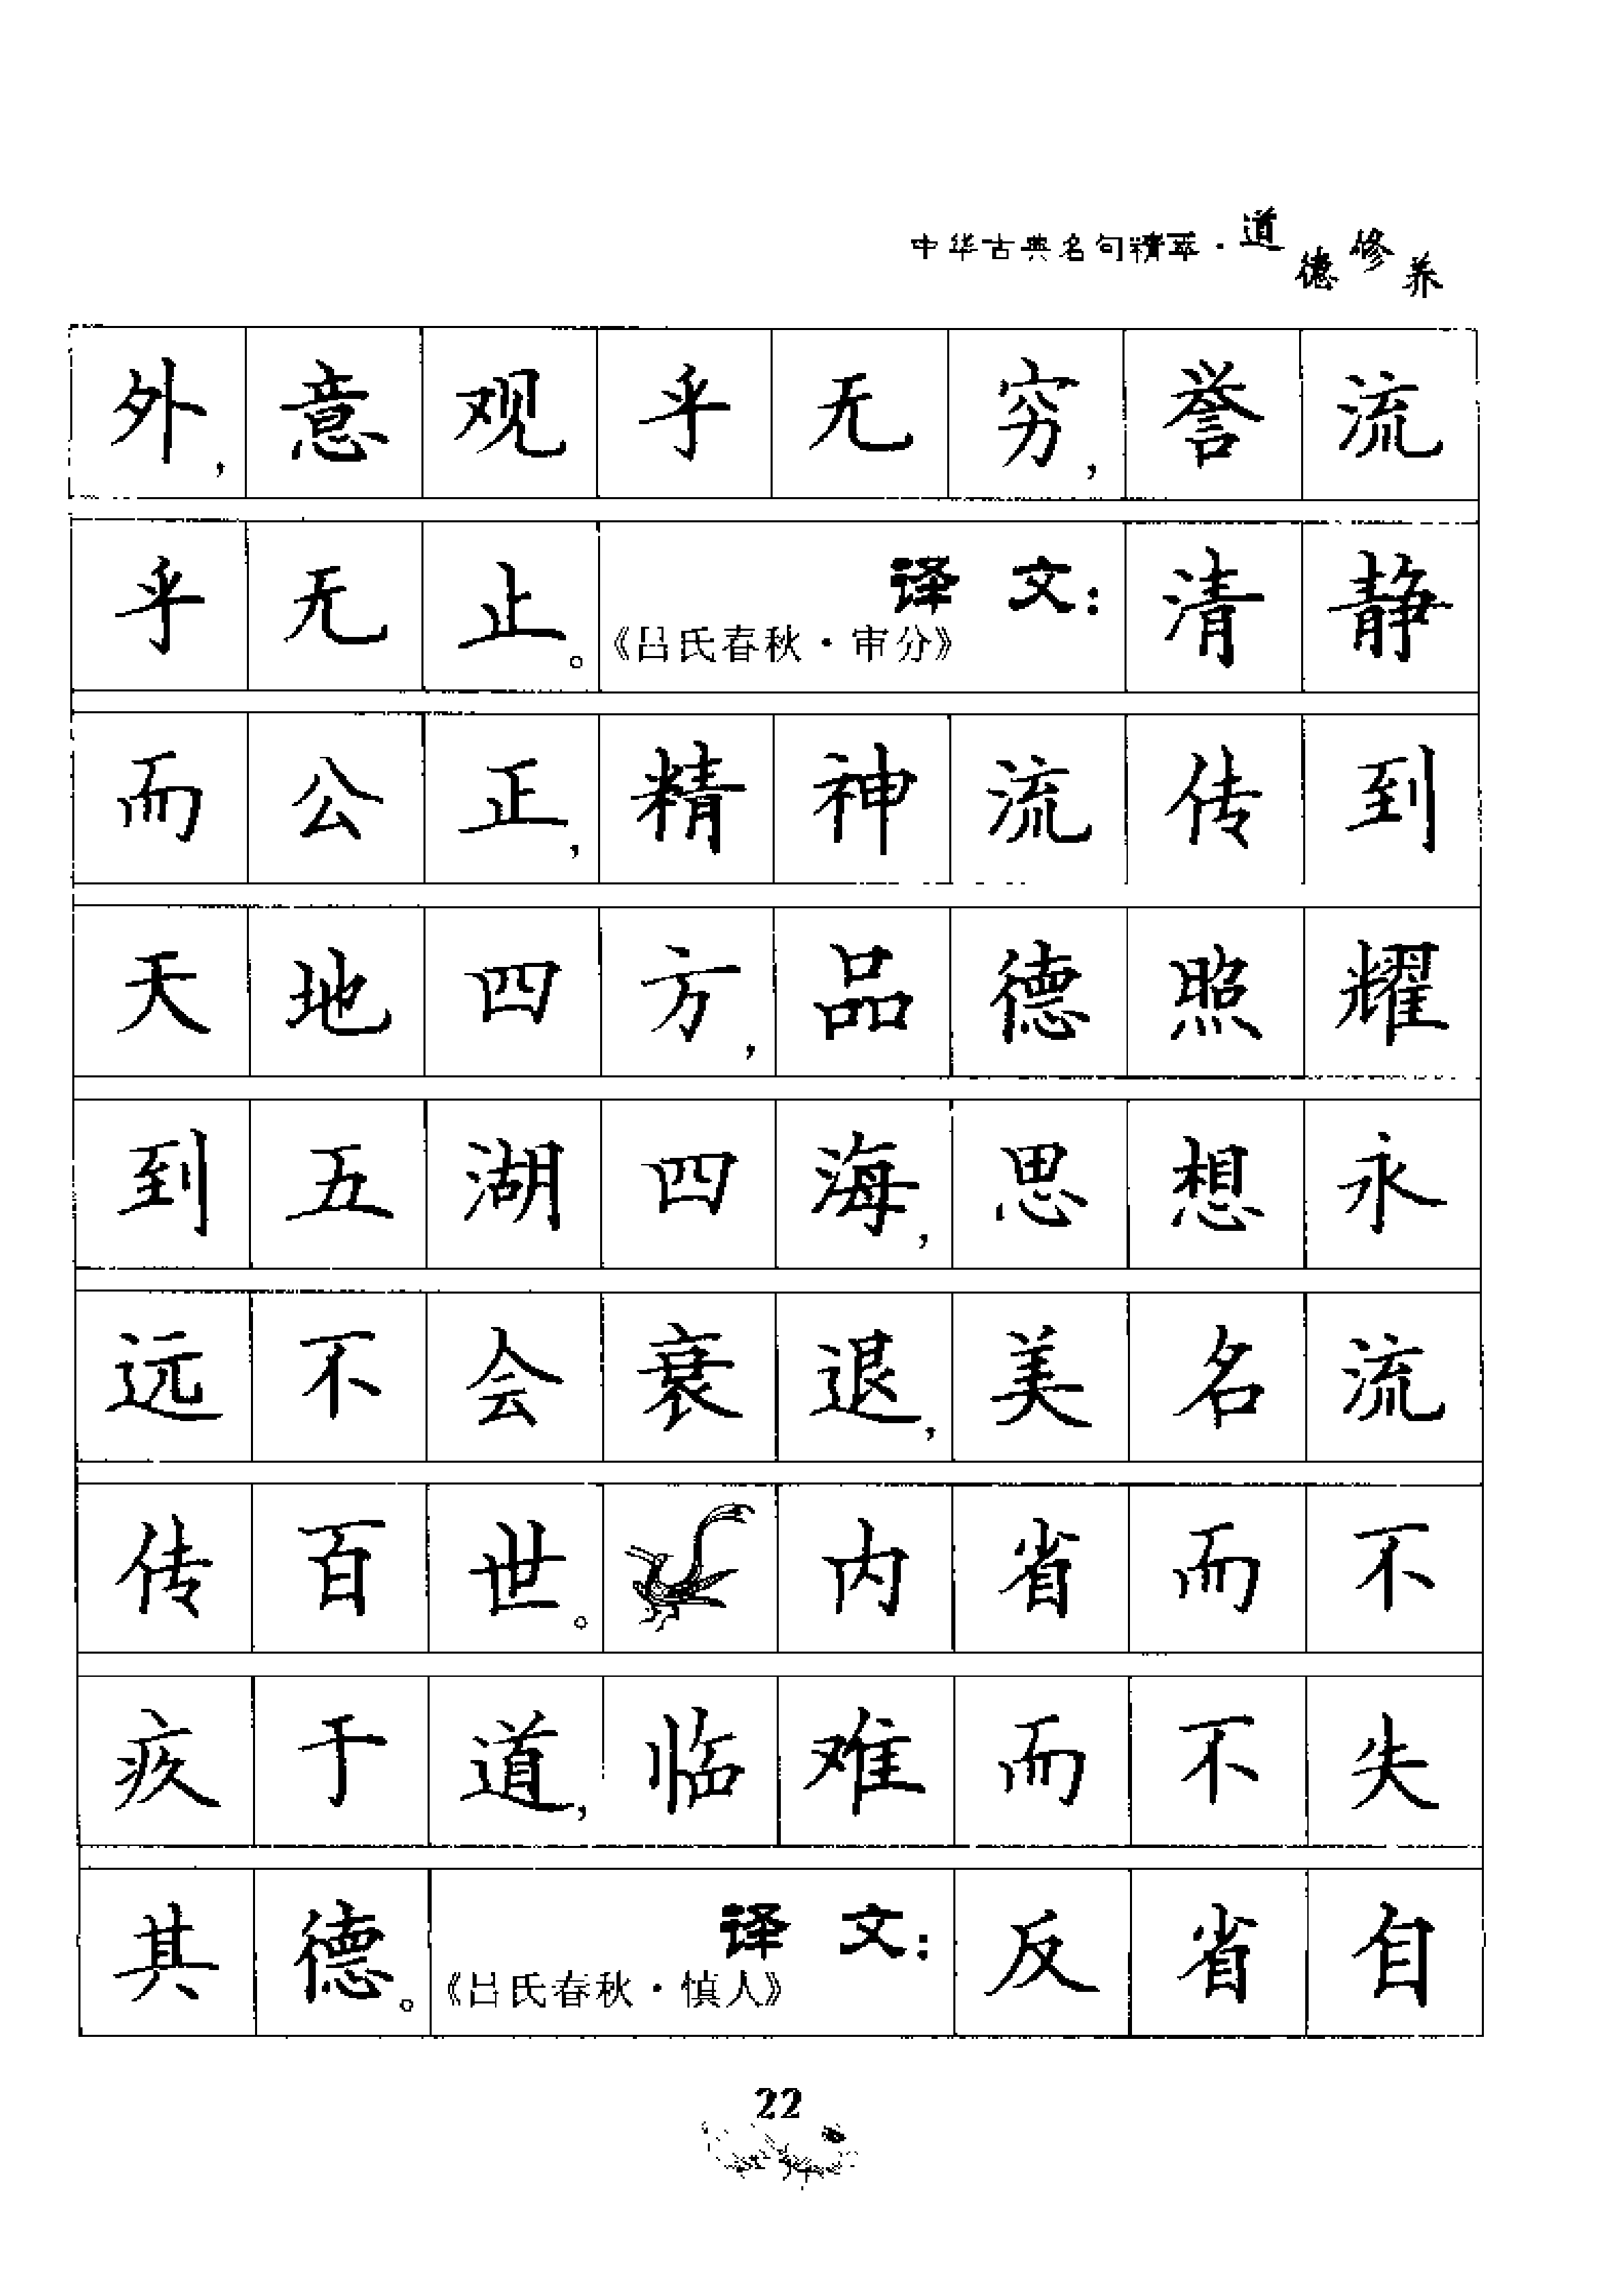 中华古典名句精萃·道德修养
外，意观乎无穷，誉流
乎无止。《吕氏春秋·审分》译文：清静
而公正，精神流传到
天地四方，品德照耀
到五湖四海，思想永
远不会衰退，美名流
传百世。内省而不
疚于道，临难而不失
其德。《吕氏春秋·慎人》译文：反省自
22